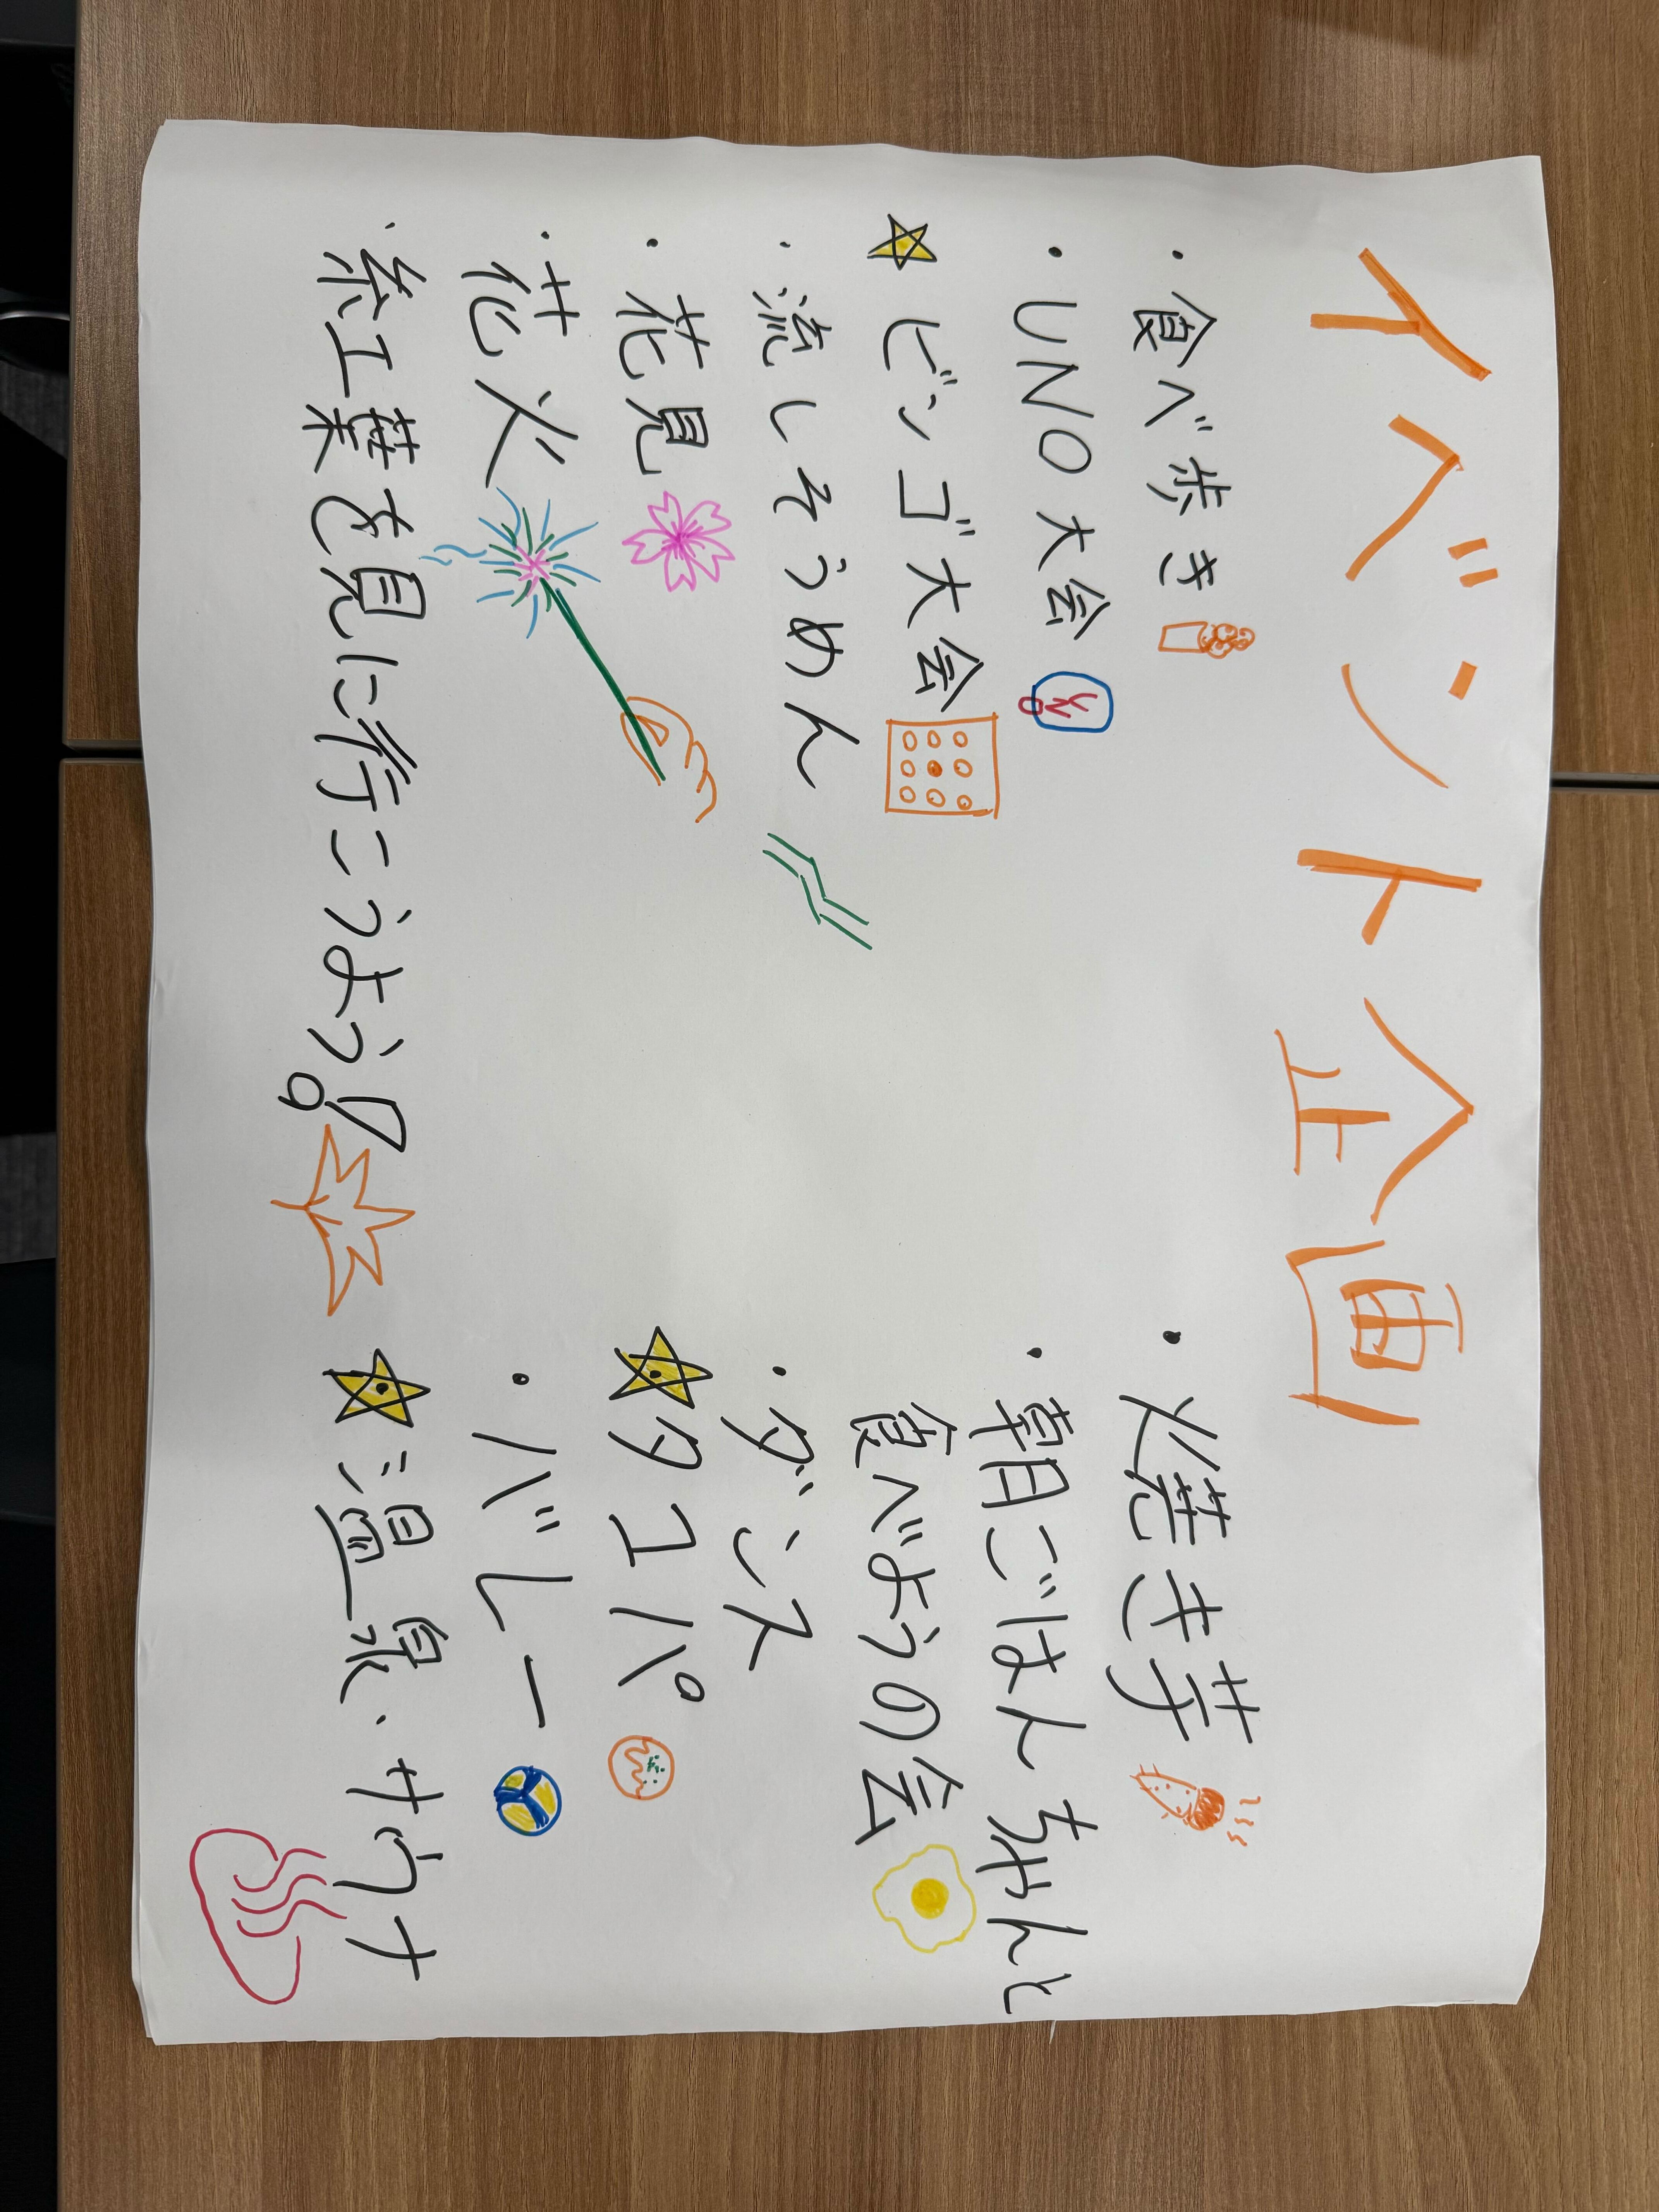 イベント企画
・食べ歩き
・UNO大会
UNO
☆ビンゴ大会
・流しそうめん
・花見
・花火
・紅葉を見に行こうよう!
・焼き芋
・朝ごはんちゃんと
食べようの会
・ダンス
☆タコパ
・バレー
☆温泉・サウナ